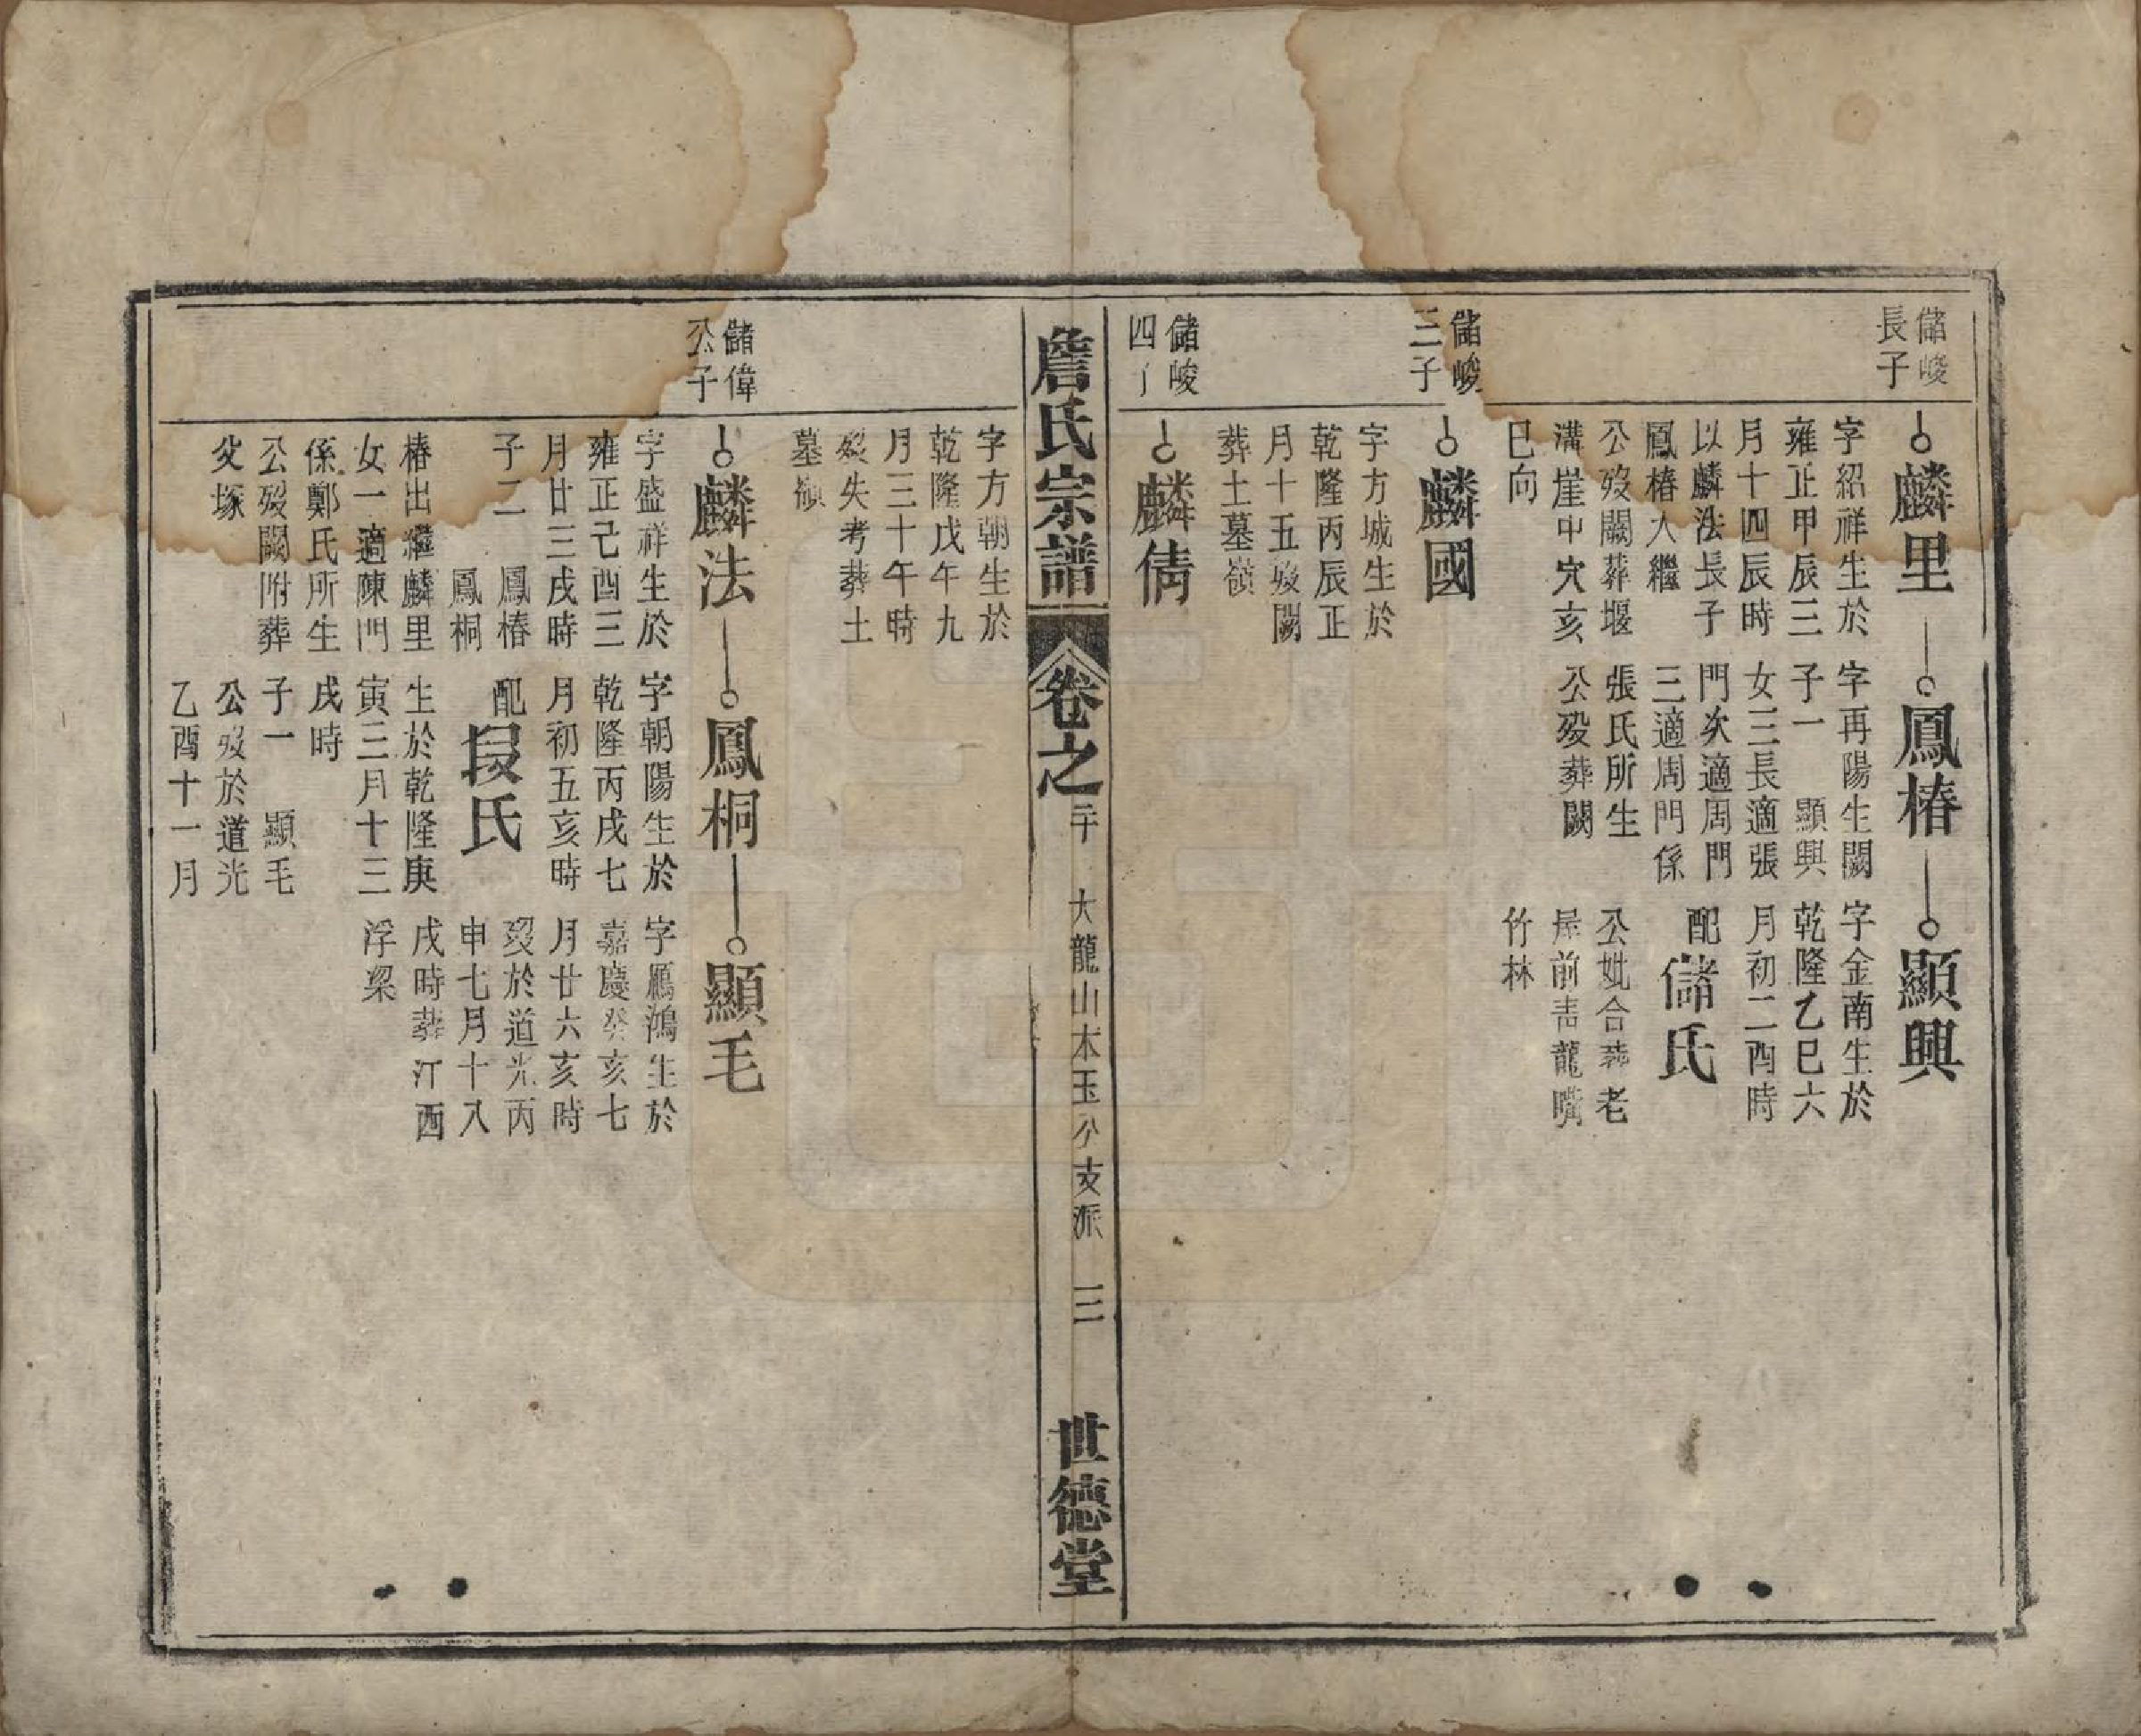 儲峻
長子
麟里
字紹祥生於
雍正甲辰三
月十四辰時
以麟法長子
鳳椿入繼
公歿闕葬堰
溝崖中穴亥
巳向
鳳椿
字再陽生闕
子一　顯興
女三長適張
門次適周門
三適周門係
張氏所生
公歿葬闕
顯興
字金南生於
乾隆乙巳六
月初二酉時
配儲氏
公妣合葬老
屋前青龍嘴
竹林
儲峻
三子
麟國
字方城生於
乾隆丙辰正
月十五歿闕
葬土墓嶺
儲峻
四子
麟倩
詹氏宗譜
卷之二十
大龍山木玉公支派
三
世德堂
字方朝生於
乾隆戊午九
月三十午時
歿失考葬土
墓嶺
儲偉
公子
麟法
字盛祥生於
雍正己酉三
月廿三戌時
子二　鳳椿
鳳桐
椿出繼麟里
女一適陳門
係鄭氏所生
公歿闕附葬
父塚
鳳桐
字朝陽生於
乾隆丙戌七
月初五亥時
配段氏
生於乾隆庚
寅三月十三
戌時
子一　顯毛
公歿於道光
乙酉十一月
顯毛
字鴈鴻生於
嘉慶癸亥七
月廿六亥時
歿於道光丙
申七月十八
戌時葬江西
浮梁